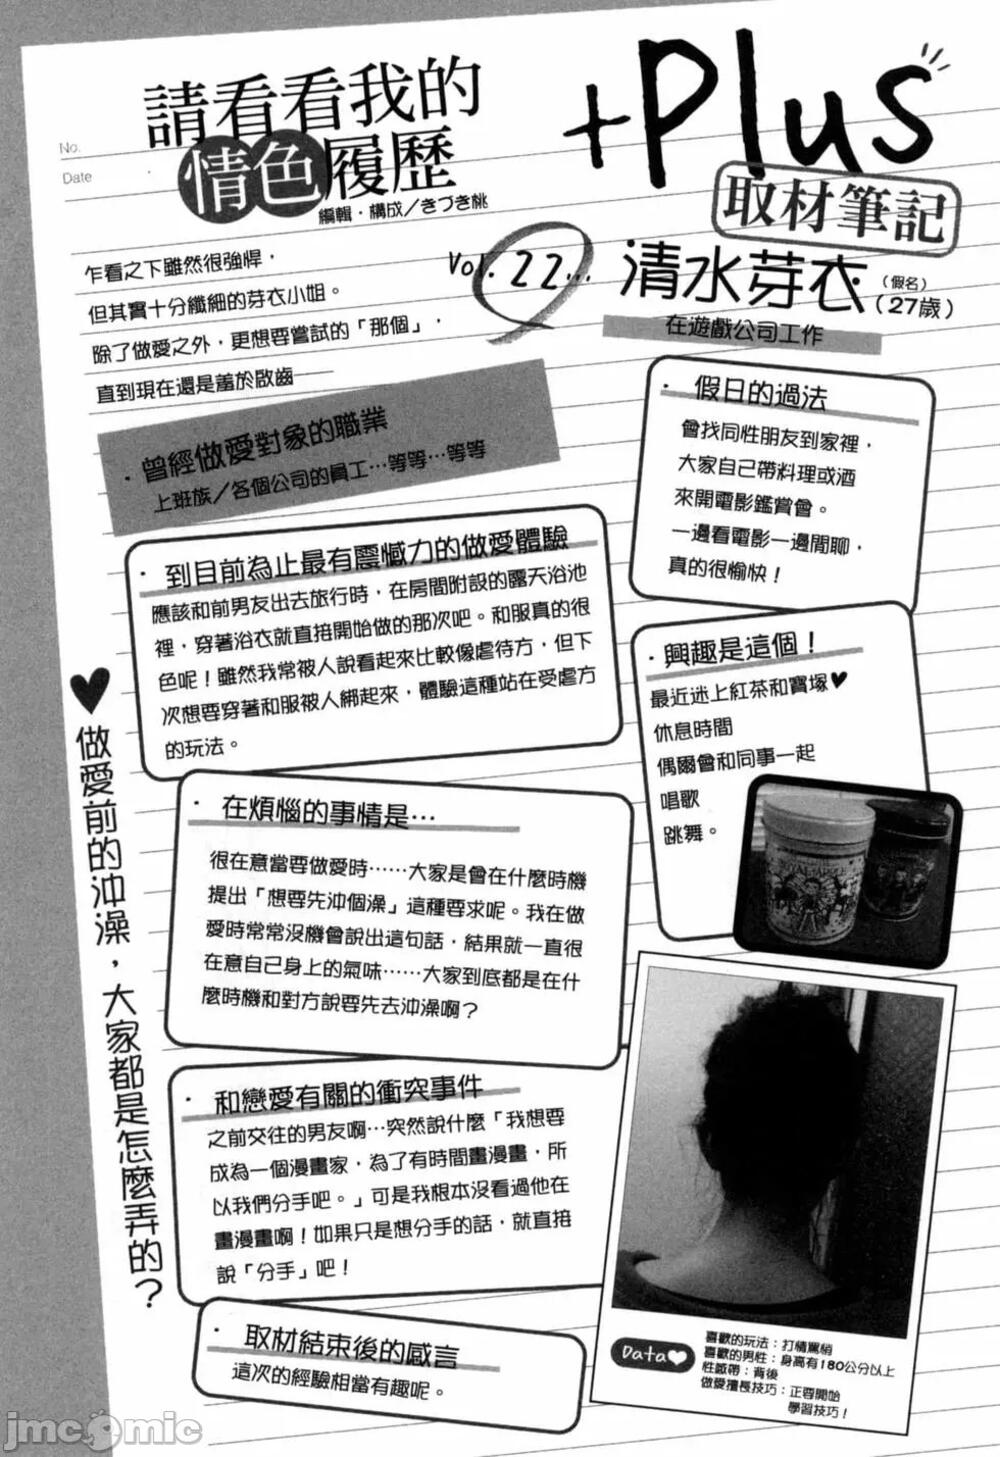 No.
Date
請看看我的
情色履歷
編輯・構成／きづき桃
+Plus
取材筆記
Vol. 22...
清水芽衣
(假名)
(27歲)
在遊戲公司工作
乍看之下雖然很強悍，
但其實十分纖細的芽衣小姐。
除了做愛之外，更想要嘗試的「那個」，
直到現在還是羞於啟齒——
・曾經做愛對象的職業
上班族／各個公司的員工…等等…等等
・假日的過法
會找同性朋友到家裡，
大家自己帶料理或酒
來開電影鑑賞會。
一邊看電影一邊閒聊，
真的很愉快！
・到目前為止最有震憾力的做愛體驗
應該和前男友出去旅行時，在房間附設的露天浴池
裡，穿著浴衣就直接開始做的那次吧。和服真的很
色呢！雖然我常被人說看起來比較像虐待方，但下
次想要穿著和服被人綁起來，體驗這種站在受虐方
的玩法。
・興趣是這個！
最近迷上紅茶和寶塚♥
休息時間
偶爾會和同事一起
唱歌
跳舞。
♥做愛前的沖澡，大家都是怎麼弄的？
・在煩惱的事情是…
很在意當要做愛時……大家是會在什麼時機
提出「想要先沖個澡」這種要求呢。我在做
愛時常常沒機會說出這句話，結果就一直很
在意自己身上的氣味……大家到底都是在什
麼時機和對方說要先去沖澡啊？
・和戀愛有關的衝突事件
之前交往的男友啊…突然說什麼「我想要
成為一個漫畫家，為了有時間畫漫畫，所
以我們分手吧。」可是我根本沒看過他在
畫漫畫啊！如果只是想分手的話，就直接
說「分手」吧！
・取材結束後的感言
這次的經驗相當有趣呢。
Data♥
喜歡的玩法：打情罵俏
喜歡的男性：身高有180公分以上
性感帶：背後
做愛擅長技巧：正要開始
學習技巧！
jmcomic